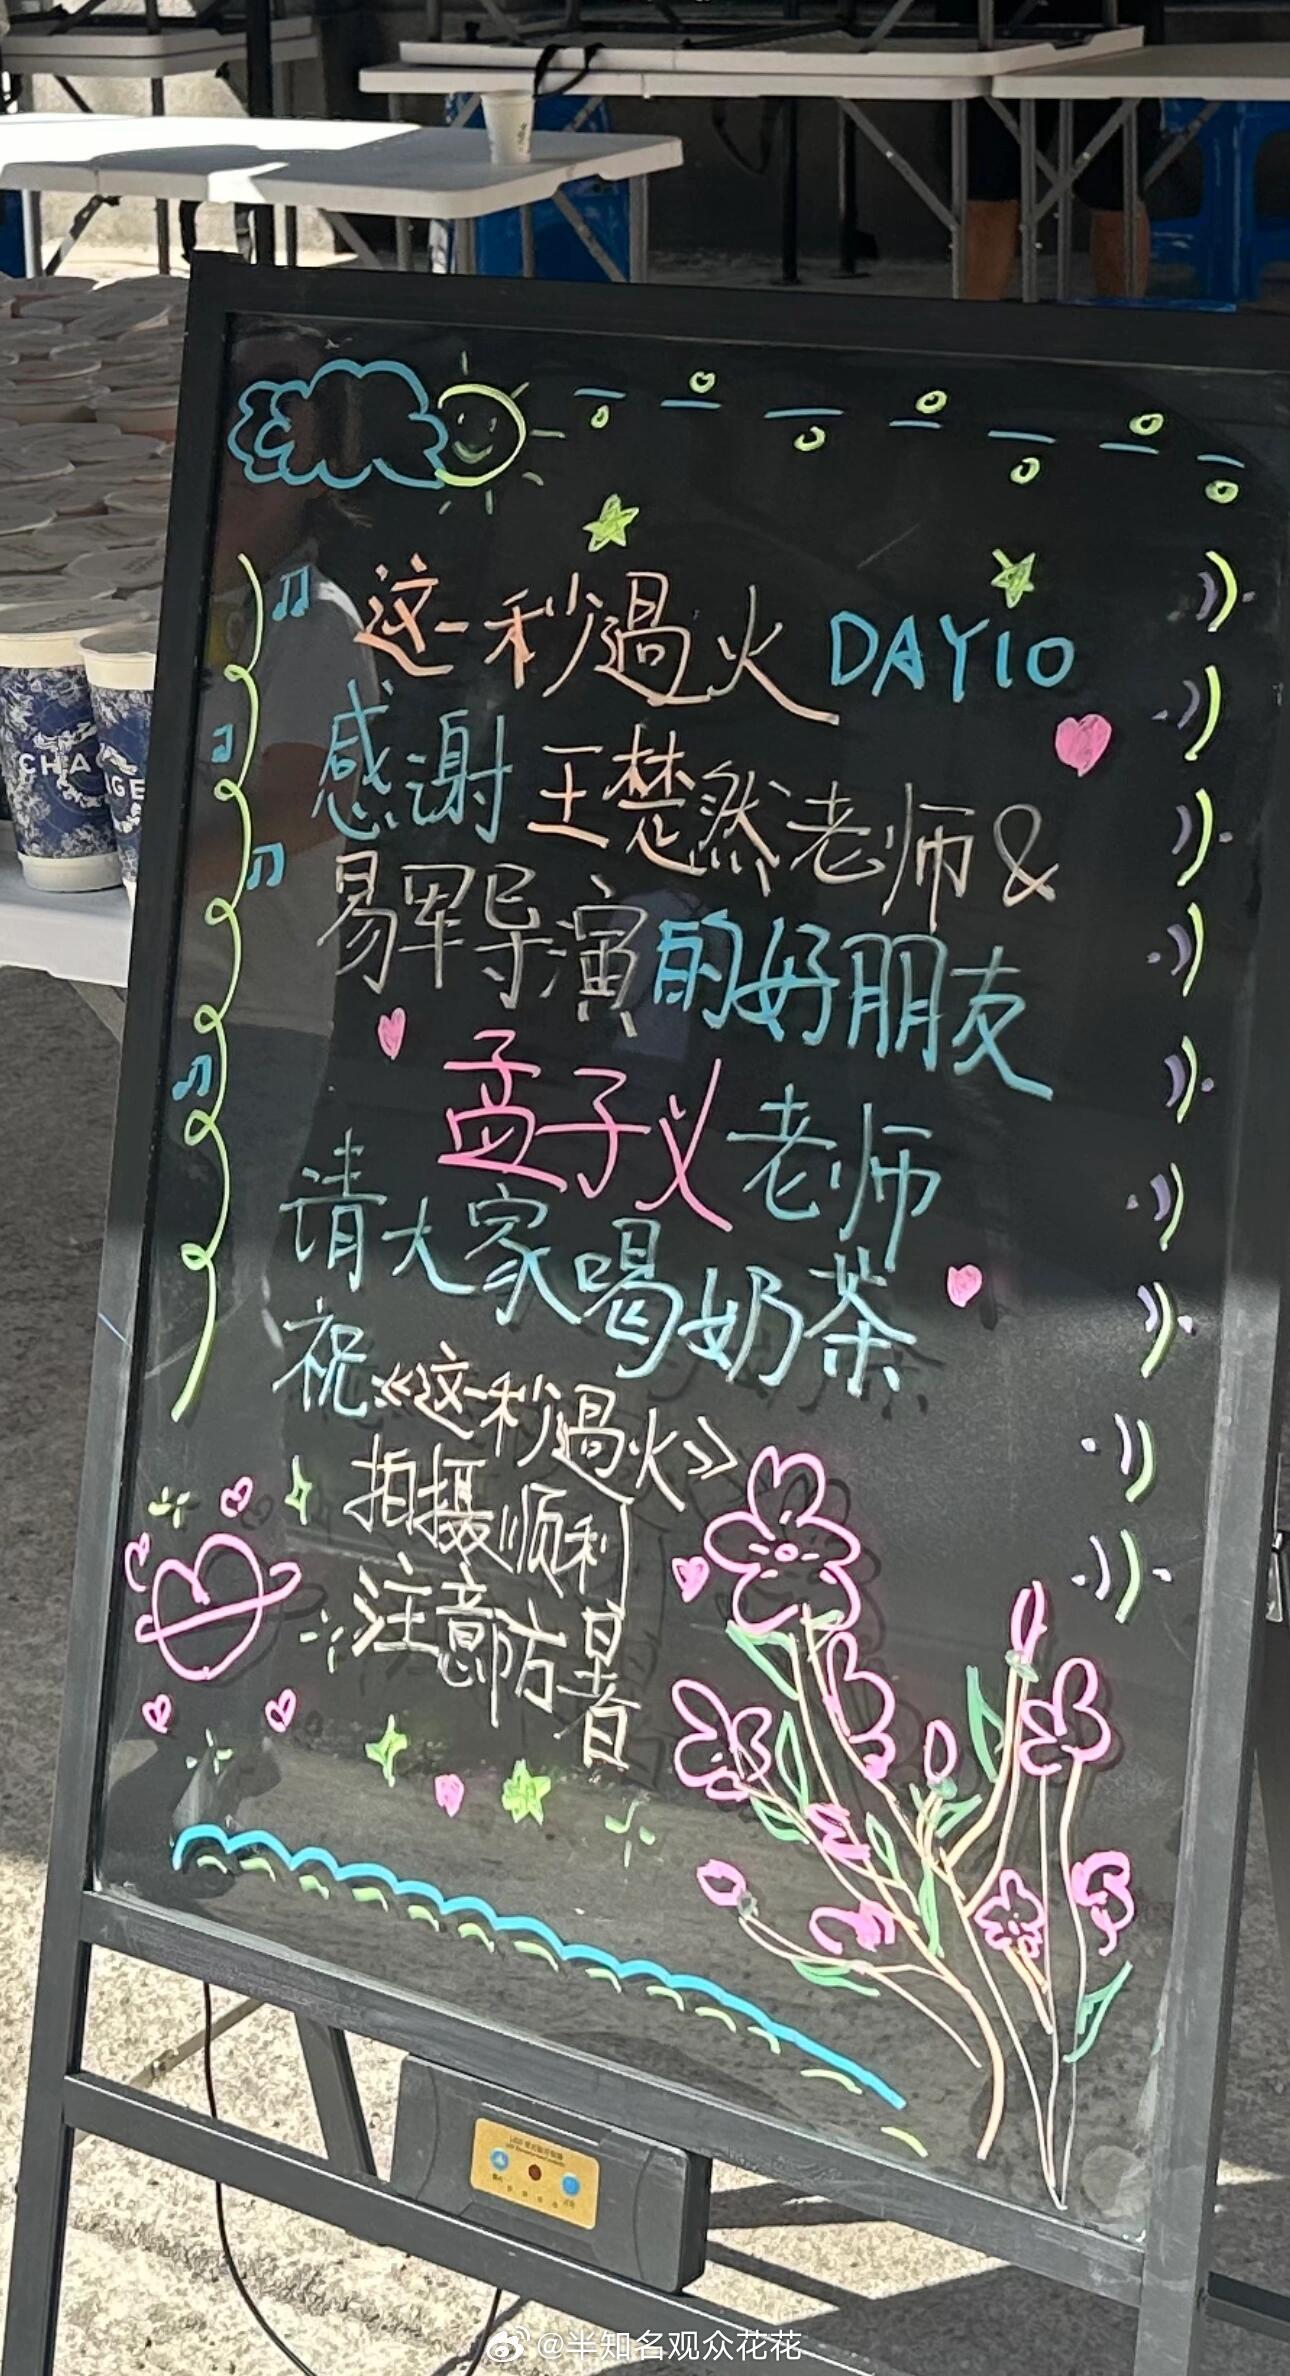 这一秒過火 DAY10
感谢王楚然老师&
易军导演的好朋友
孟子义老师
请大家喝奶茶
祝:《这一秒過火》
拍摄顺利
注意防暑
CHA
GE
@半知名观众花花